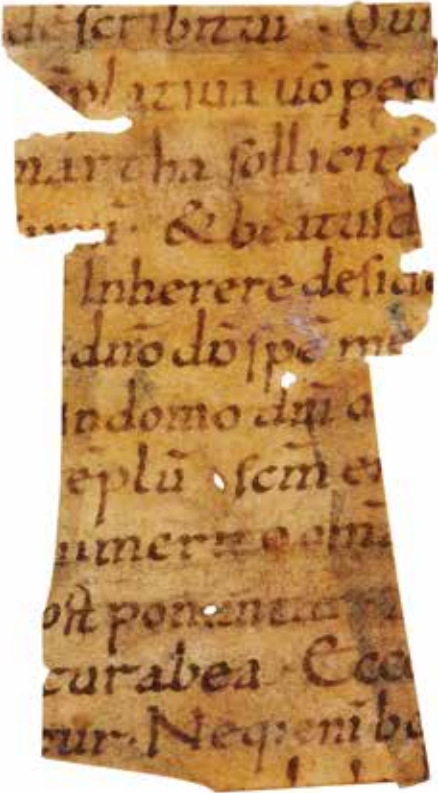 describitur · Qui
ēplatiua uō pec
martha sollicit
& beatus d
Inherere deside
dnō dō spē me
in domo dni o
ēplū scm̄ e
merito om̄
ost ponantur
cura bea · Ecce
tur · Neq; eni bo